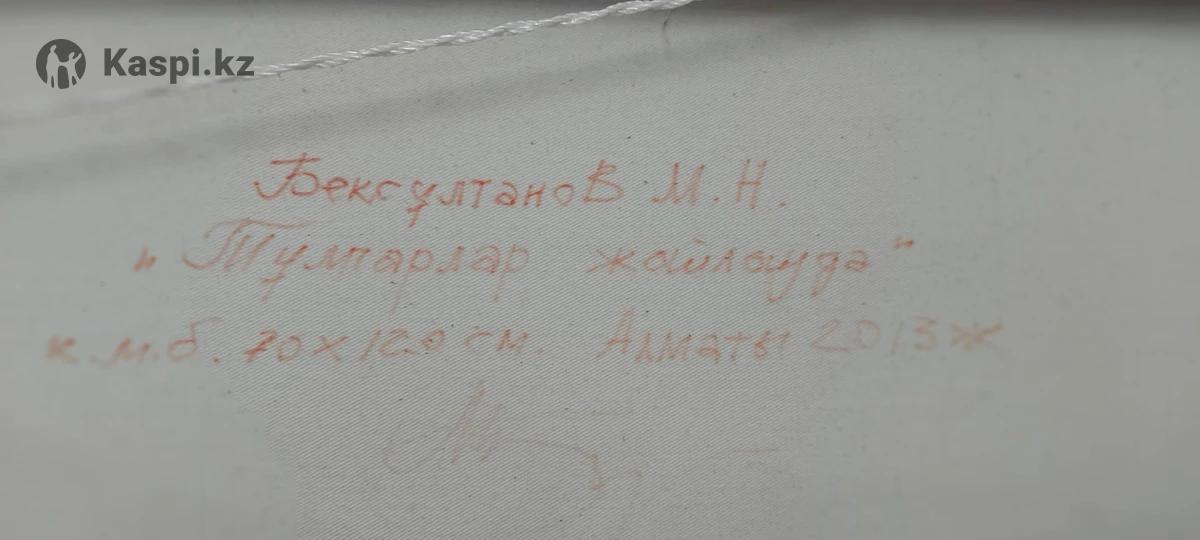 Kaspi.kz
Бексұлтанов М.Н.
"Тұлпарлар жайлауда"
к.м.б. 70х120 см. Алматы 2013ж